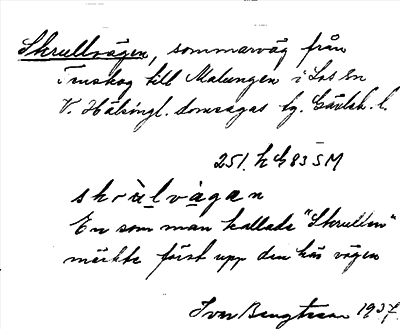 Skrullvägen, sommarväg från
Tinskog till Malungen i Los sn
V. Hälsingl. domsagas tg. Gävleb. l.
251. h h 83 SM
skrùlvàgan
En som man kallade "Skrullen"
märkte först upp den här vägen
Ivar Bengtsson 1937.